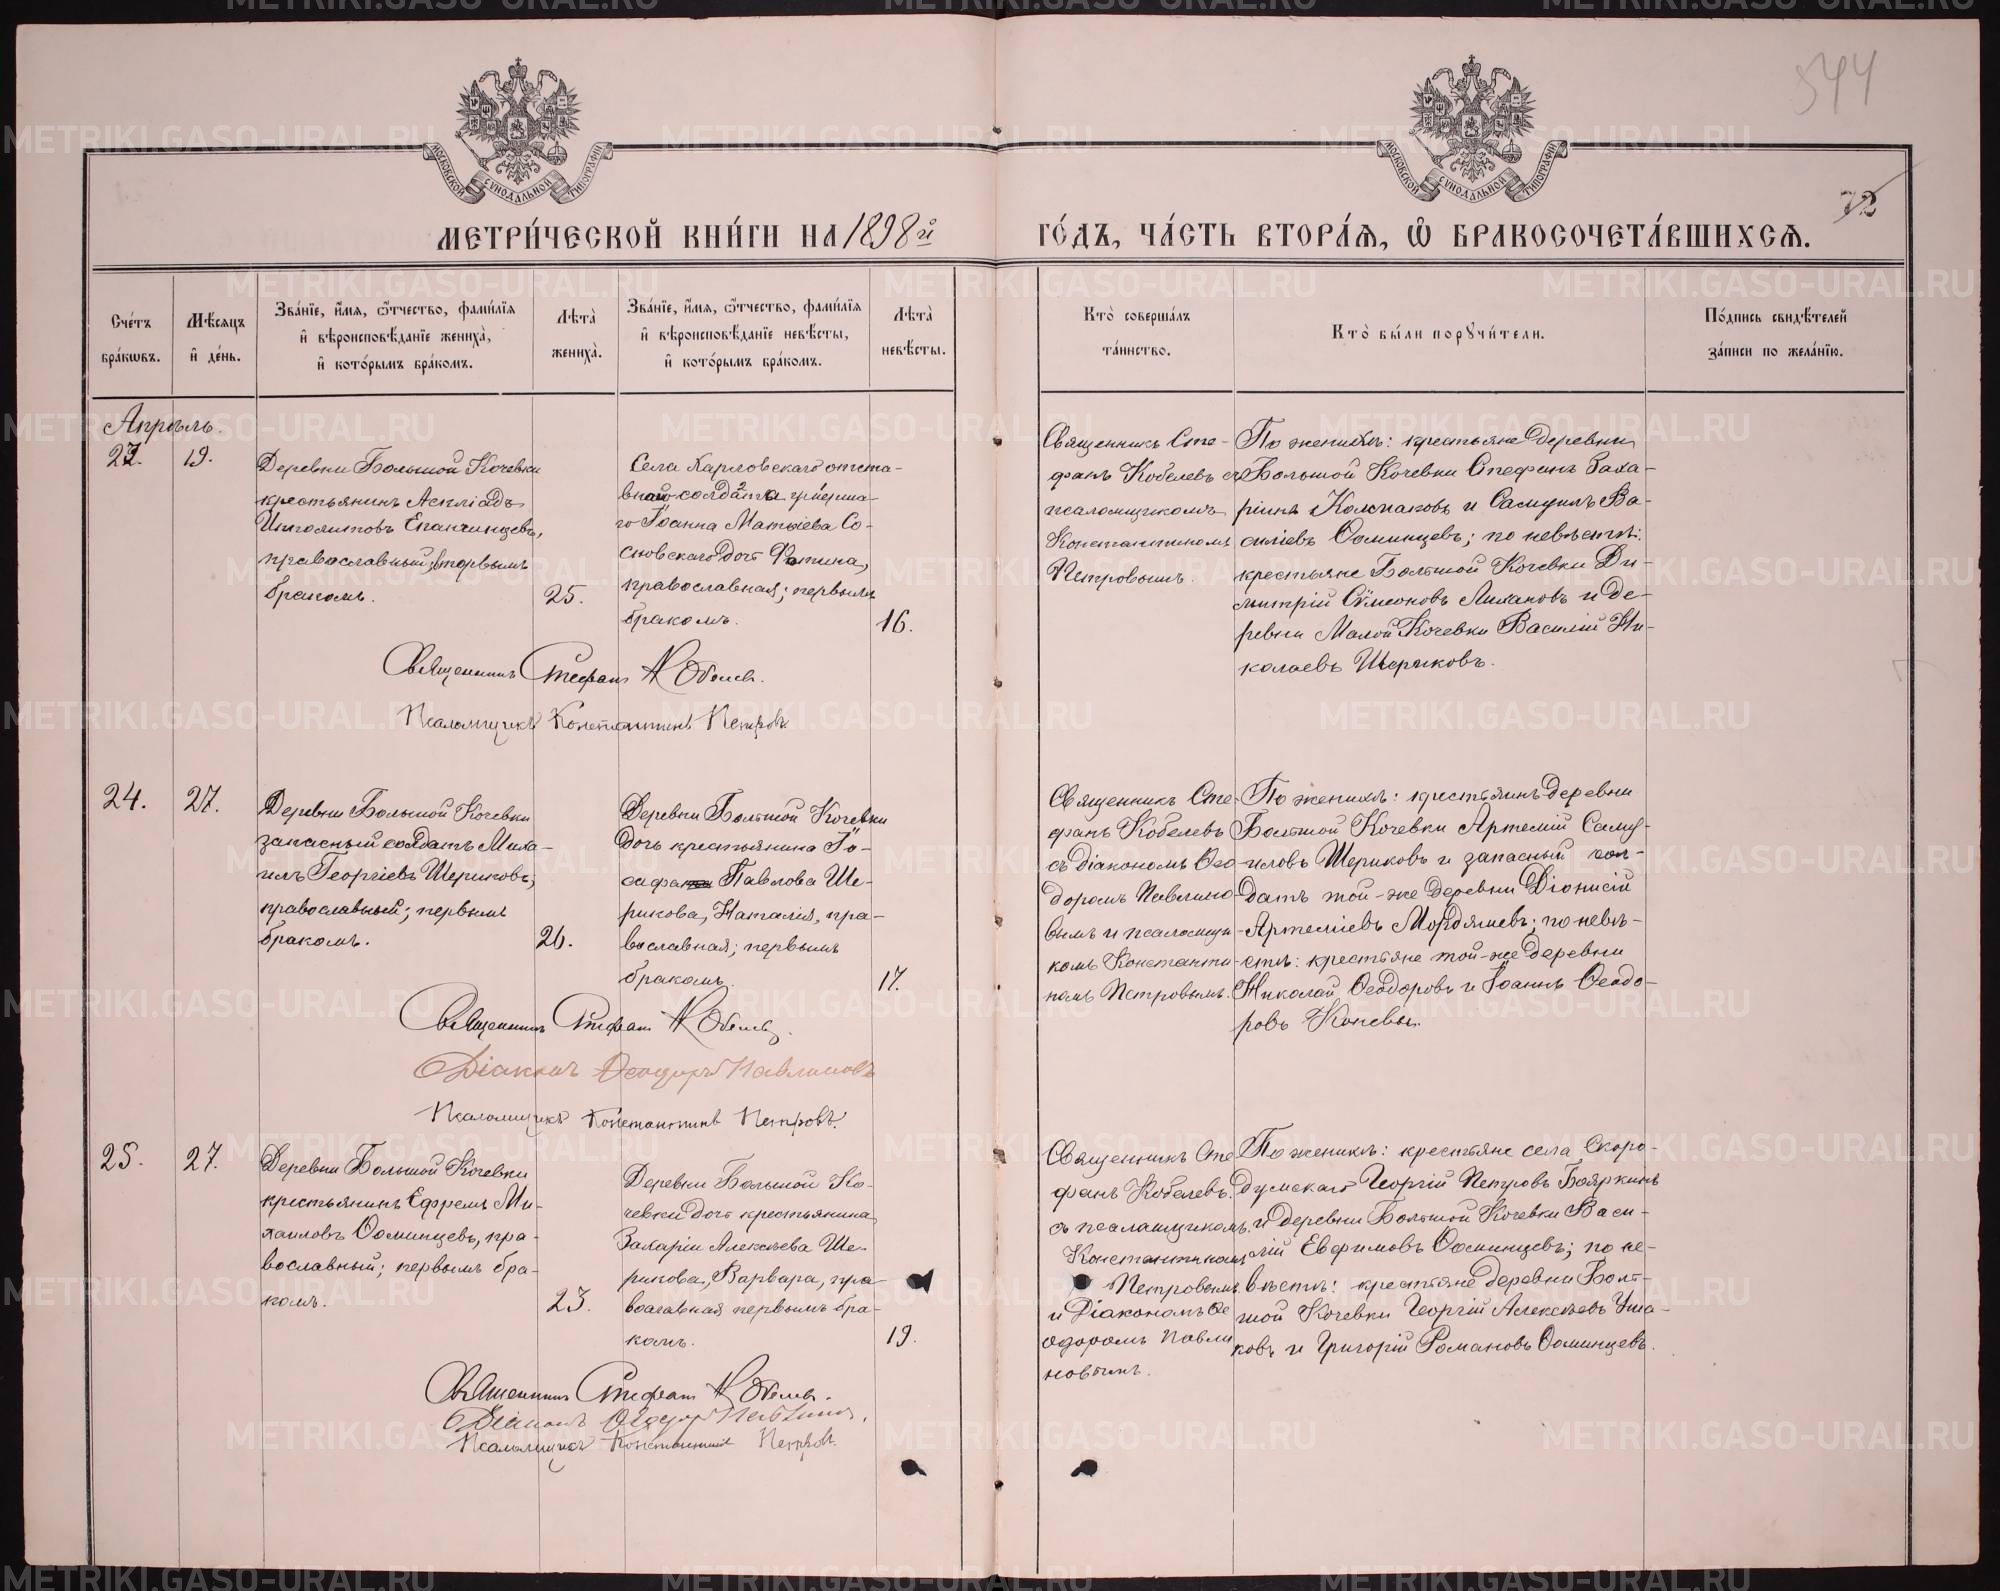 544
72
МОСКОВСКОЙ СѴНОДАЛЬНОЙ ТИПОГРАФІИ
МОСКОВСКОЙ СѴНОДАЛЬНОЙ ТИПОГРАФІИ
МЕТРИ́ЧЕСКОЙ КНИ́ГИ НА 1898й
ГО́ДЪ, ЧА́СТЬ ВТОРА́Я, Ѽ БРАКОСОЧЕТА́ВШИХСЯ.
Сче́тъ
бра́кѡвъ.
Мѣ́сяцъ
и҆ де́нь.
Зва́нїе, и҆́мя, ѻ҆́тчество, фамѝлїя
и҆ вѣроисповѣ́данїе жениха̀,
и҆ кото́рымъ бра́комъ.
Лѣ́та̀
жениха̀.
Зва́нїе, и҆́мя, ѻ҆́тчество, фамѝлїя
и҆ вѣроисповѣ́данїе невѣ́сты,
и҆ кото́рымъ бра́комъ.
Лѣ́та̀
невѣ́сты.
Кто̀ соверша́лъ
та́инство.
Кто̀ бы́ли порꙋчи́тели.
По́дпись свидѣ́телей
за́писи по жела́нїю.
Апрѣль.
23.
19.
Деревни Большой Кочевки
крестьянинъ
Ипполитовъ Епанчинцевъ,
православный, вторымъ
бракомъ.
25.
Села Карловскаго отста-
внаго солдата
го Іоанна Матѳіева Со-
сновскаго дочь Фотина,
православная; первымъ
бракомъ.
16.
Священникъ Сте-
фанъ Кобелевъ съ
псаломщикомъ
Константиномъ
Петровымъ.
По женихѣ: крестьяне деревни
Большой Кочевки Стефанъ Заха-
ріинъ Колпаковъ и Самуилъ Ва-
силіевъ Ѳоминцевъ; по невѣстѣ:
крестьяне Большой Кочевки Ди-
митрій Сѵмеоновъ Липановъ и де-
ревни Малой Кочевки Василій Ни-
колаевъ Шериковъ.
Священникъ Стефанъ Кобелевъ.
Псаломщикъ Константинъ Петровъ
24.
27.
Деревни Большой Кочевки
запасный солдатъ Миха-
илъ Георгіевъ Шериковъ,
православный; первымъ
бракомъ.
26.
Деревни Большой Кочевки
дочь крестьянина Іо-
сифа Павлова Ше-
рикова, Наталія, пра-
вославная; первымъ
бракомъ.
17.
Священникъ Сте-
фанъ Кобелевъ
съ діакономъ Ѳео-
доромъ Павлино-
вымъ и псаломщи-
комъ Константи-
номъ Петровымъ.
По женихѣ: крестьянинъ деревни
Большой Кочевки Артемій Саму-
иловъ Шериковъ и запасный сол-
датъ той-же деревни Діонисій
Артеміевъ Мордяшевъ; по невѣ-
стѣ: крестьяне той-же деревни
Николай Ѳеодоровъ и Іоаннъ Ѳеодо-
ровъ Коневы.
Священникъ Стефанъ Кобелевъ.
Діаконъ Ѳеодоръ Павлиновъ
Псаломщикъ Константинъ Петровъ.
25.
27.
Деревни Большой Кочевки
крестьянинъ Ефремъ Ми-
хаиловъ Ѳоминцевъ, пра-
вославный; первымъ бра-
комъ.
23.
Деревни Большой Ко-
чевки дочь крестьянина
Захаріи Алексѣева Ше-
рикова, Варвара, пра-
вославная первымъ бра-
комъ.
19.
Священникъ Сте
фанъ Кобелевъ.
съ псаломщикомъ
Константиномъ
Петровымъ
и Діакономъ Ѳе
одоромъ Павли
новымъ.
По женихѣ: крестьяне села Скоро-
думскаго Георгій Петровъ Бояркинъ
и деревни Большой Кочевки Васи-
лій Евфимовъ Ѳоминцевъ; по не-
вѣстѣ: крестьяне деревни Боль-
шой Кочевки Георгій Алексѣевъ Уша-
ковъ и Григорій Романовъ Ѳоминцевъ.
Священникъ Стефанъ Кобелевъ.
Діаконъ Ѳеодоръ Павлиновъ.
Псаломщикъ Константинъ Петровъ.
METRIKI.GASO-URAL.RU